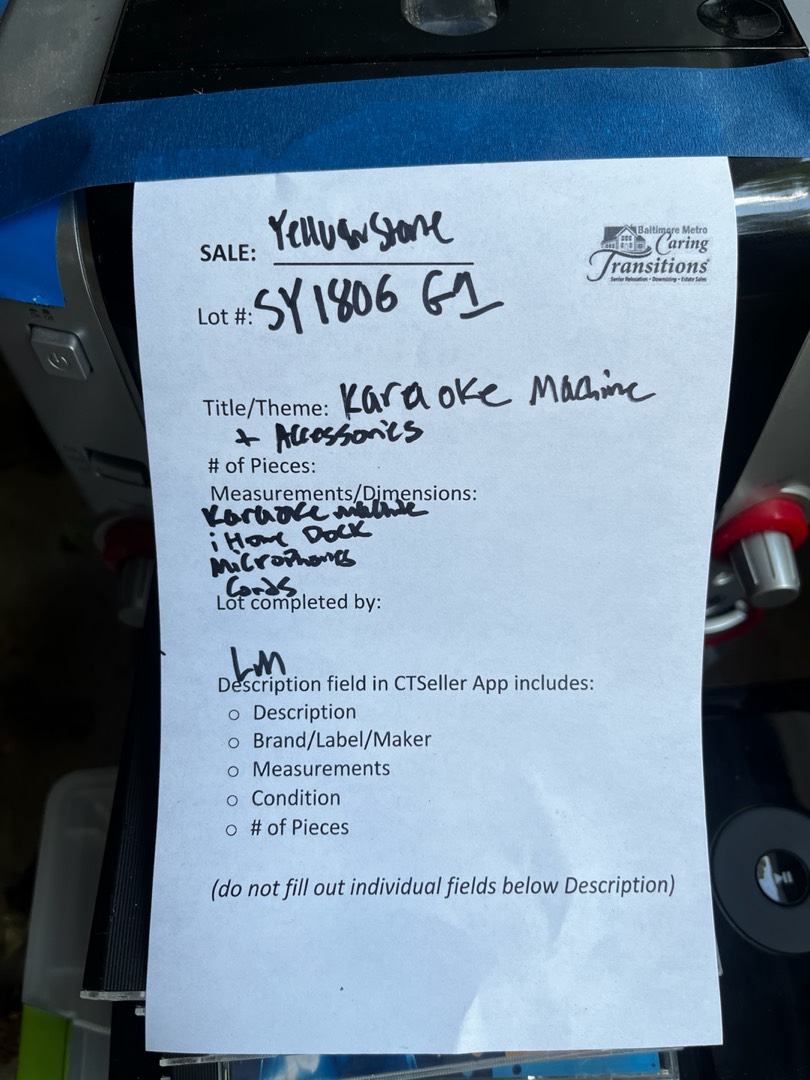 SALE: Yellowstone
Baltimore Metro
Caring
Transitions
Senior Relocation • Downsizing • Estate Sales
Lot #: SY1806 G1
Title/Theme: Karaoke Machine
+ Accessories
# of Pieces:
Measurements/Dimensions:
Karaoke machine
iHome Dock
Microphones
Cords
Lot completed by:
LM
Description field in CTSeller App includes:
○ Description
○ Brand/Label/Maker
○ Measurements
○ Condition
○ # of Pieces
(do not fill out individual fields below Description)